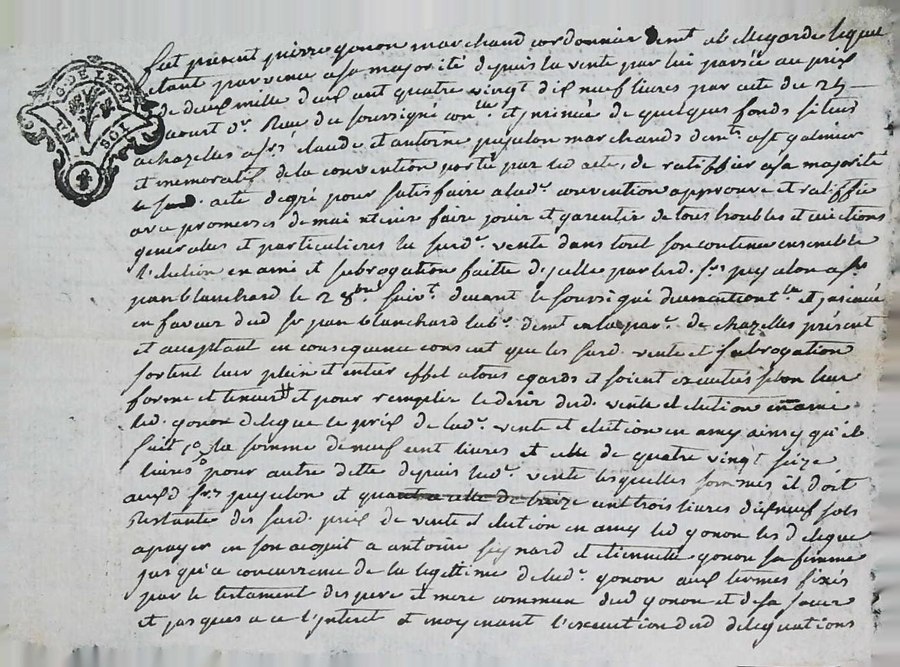 G. DE LYON
UN SOL
fut présent pierre gonon marchand cordonnier demt a bellegarde lequel
étant parvenu a sa majorité depuis la vente par lui passée au prix
de deux mille deux cent quatre vingt dix neuf livres par acte du 24
aoust dr. Reçu du soussigné con lé et jnsinuée de quelques fonds situés
a chazelles a srs claude et antoine peysselon marchands demt a st galmier
et memoratif de la convention portée par led acte, de ratiffier a sa majorité
le sud. acte de gré pour satisfaire a lade. convention approuve et ratiffie
avec promesses de maintenir faire jouir et garentir de tous troubles et evictions
generales et particulieres la susde. vente dans tout son contenu ensemble
l'election en ami et subrogation faitte d'jcelle par lesd. srs peysselon a sr
jean blanchard le 2 8bre suivt. devant le soussigné et jnsinuée
en faveur dud sr jean blanchard labr. demt en la par. de chazelles présent
et acceptant en consequence consent que les susd. vente et subrogation
sortent leur plein et entier effet a tous egards et soient executés selon leur
forme et teneur et pour remplir le desir dud. vente et election en ami
led. gonon delegue le prix de lade. vente et election en amy ainsy qu'il
suit la somme de neuf cent livres et celle de quatre vingt seize
livres pour autre dette depuis lade. vente lesquelles sommes il doit
auxd srs peysselon et quant a celle de treize cent trois livres dix neuf sols
restante des susd. prix de vente et election en amy led gonon les delegue
a payer en son acquit a antoine seynard et etiennette gonon sa femme
jusqu'a concurrence de la legitime de lade. gonon aux termes fixés
par le testament des pere et mere commun dud gonon et de sa soeur
et jusques a ce l'jnteret et moyenant l'execution desd delegations